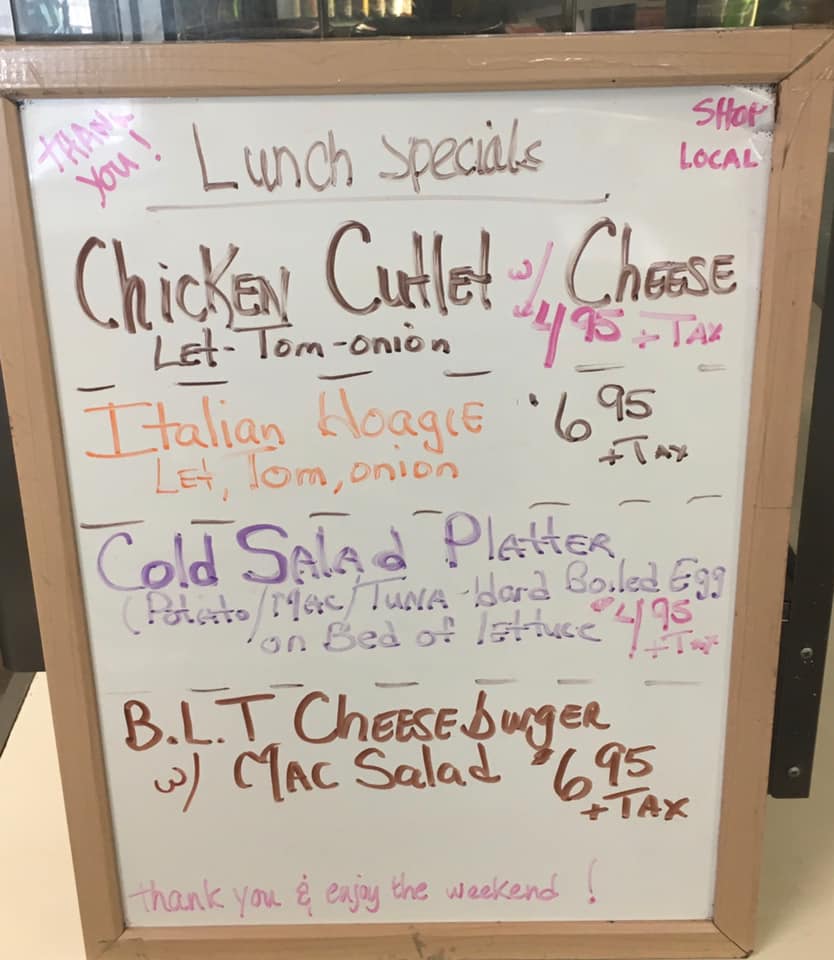 THANK YOU!
SHOP LOCAL
Lunch Specials
Chicken Cutlet w/ Cheese
Let-Tom-onion $4.95 + TAX
Italian Hoagie $6.95
Let, Tom, onion + TAX
Cold Salad Platter
(Potato/Mac/Tuna-Hard Boiled Egg
on Bed of lettuce $4.95
+ Tax
B.L.T Cheeseburger
w/ Mac Salad $6.95
+ TAX
thank you & enjoy the weekend!